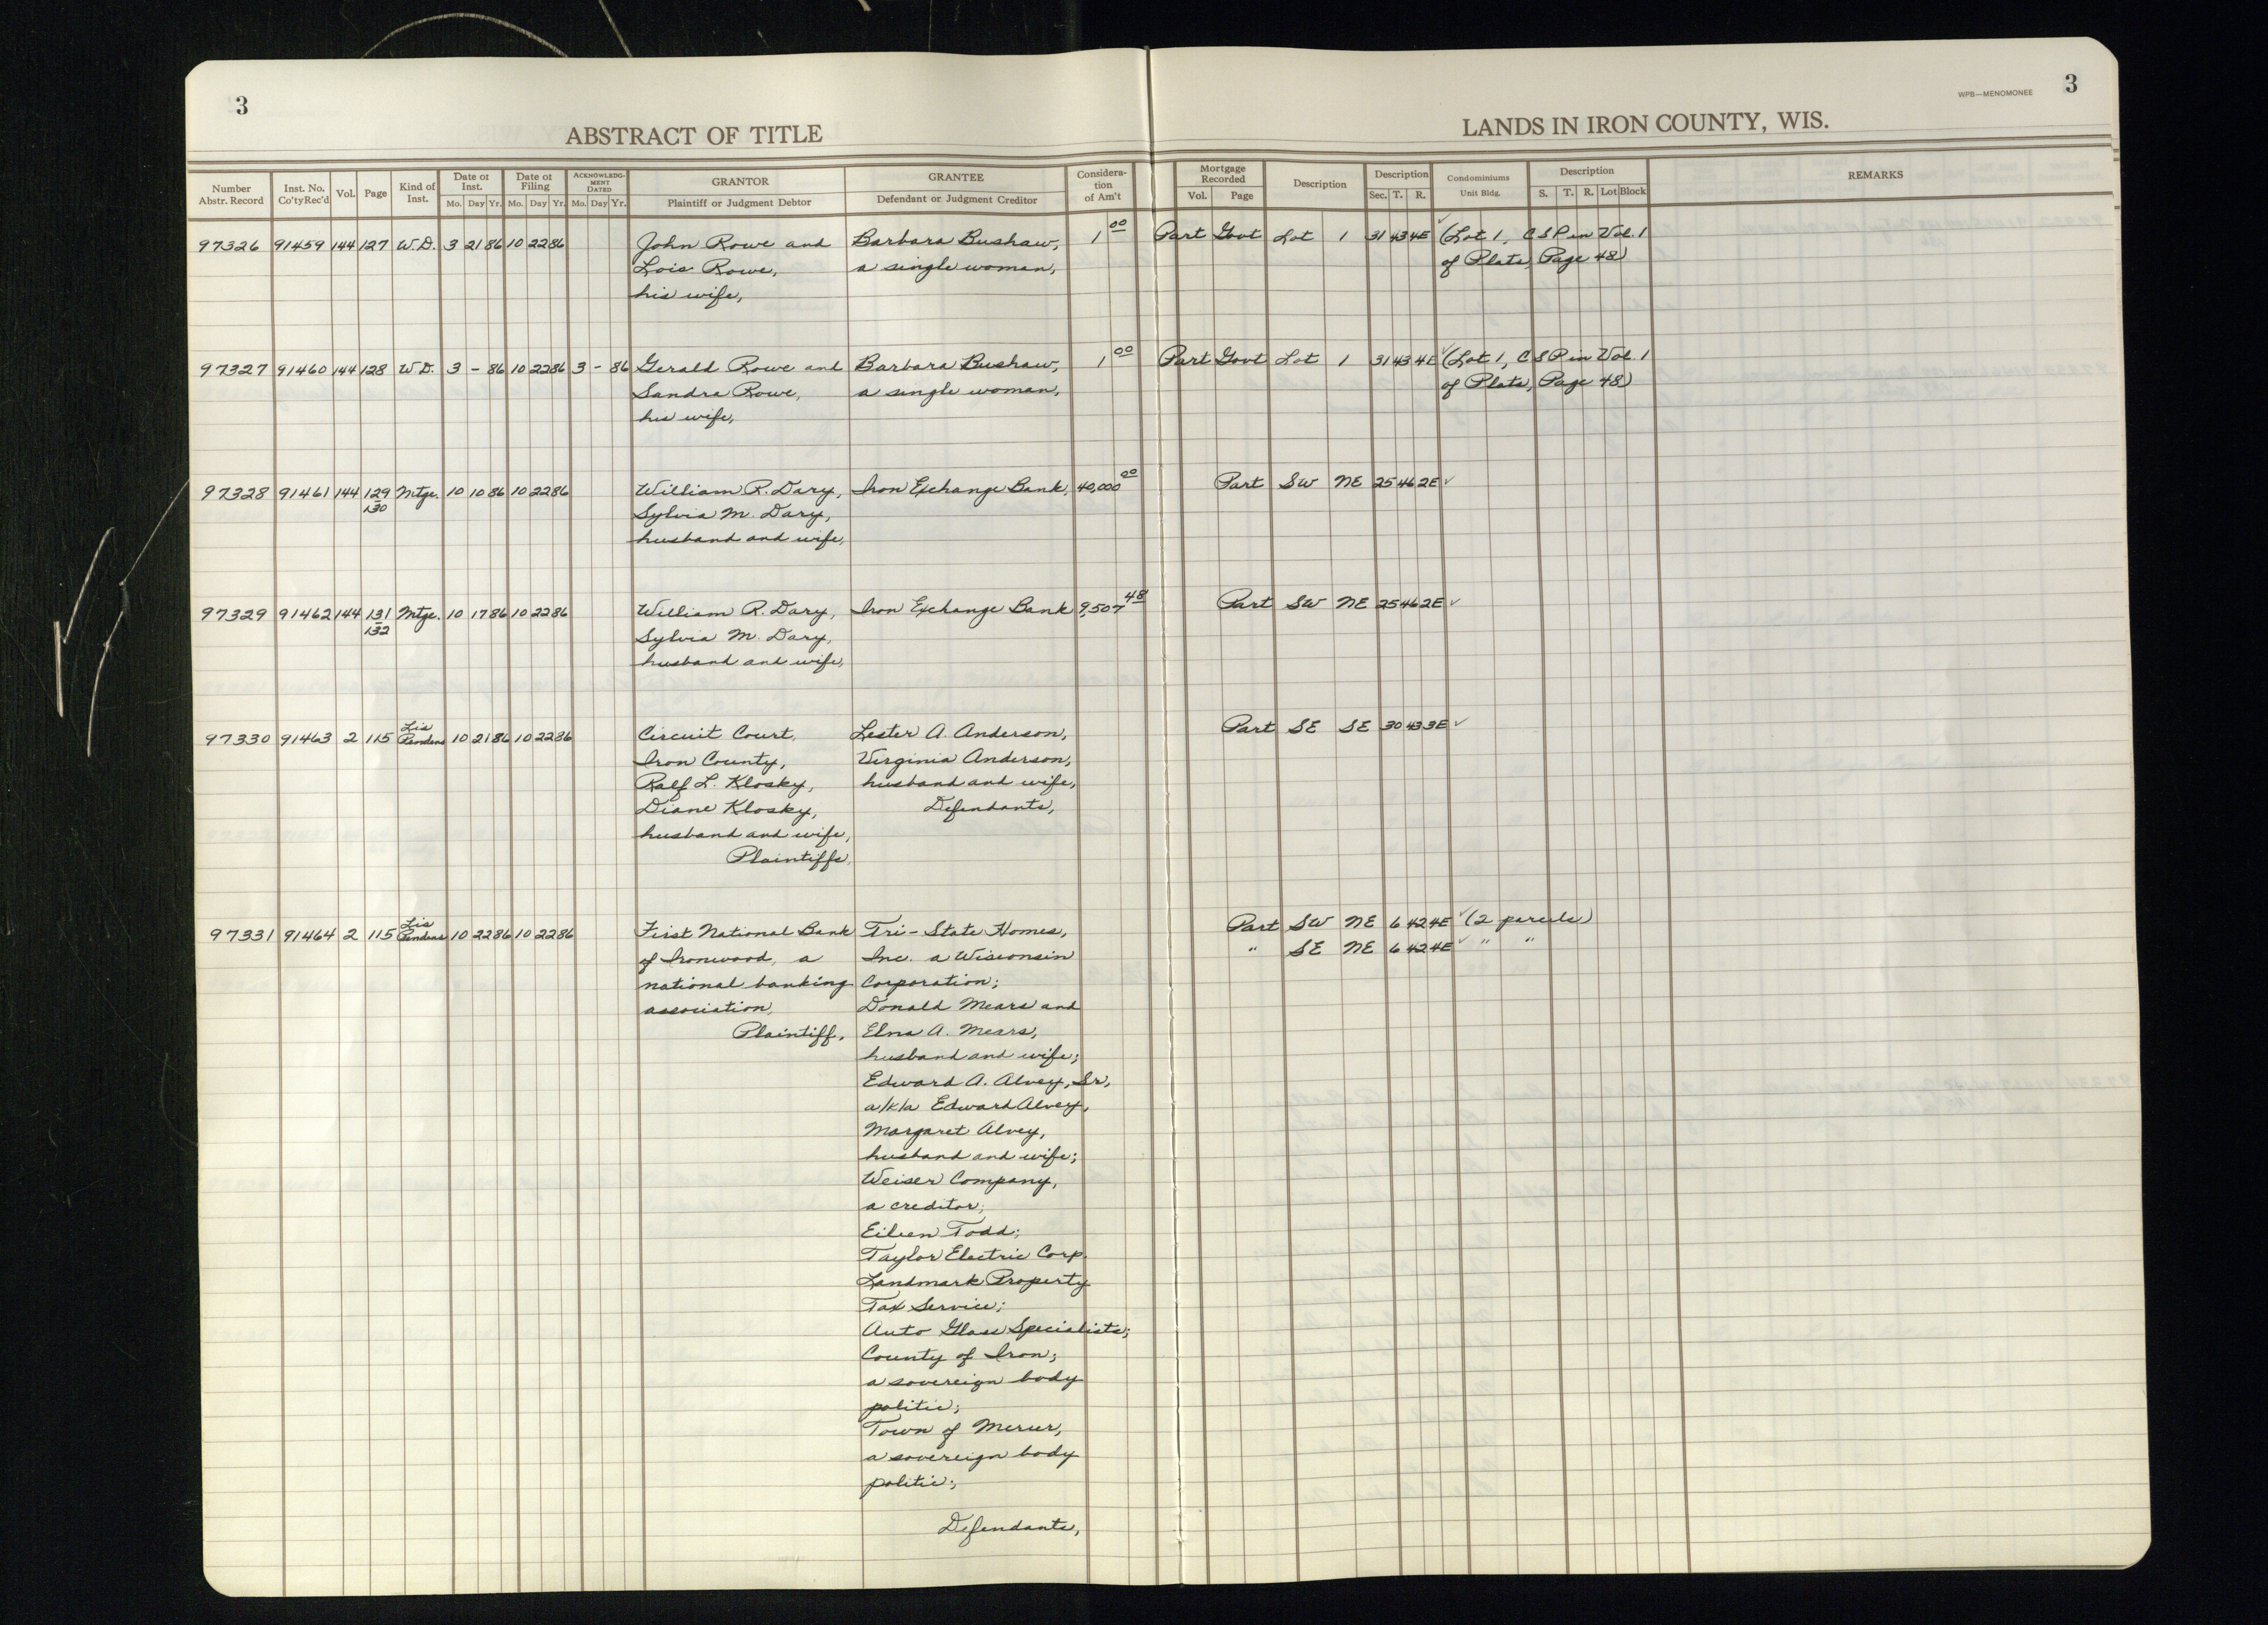 3
ABSTRACT OF TITLE
LANDS IN IRON COUNTY, WIS.
WPB—MENOMONEE
3
Number Abstr. Record
Inst. No. Co'ty Rec'd
Vol.
Page
Kind of Inst.
Date of Inst. Mo. Day Yr.
Date of Filing Mo. Day Yr.
ACKNOWLEDGMENT DATED Mo. Day Yr.
GRANTOR Plaintiff or Judgment Debtor
GRANTEE Defendant or Judgment Creditor
Consideration of Am't
Mortgage Recorded Vol. Page
Description
Description Sec. T. R.
Condominiums Unit Bldg.
Description S. T. R. Lot Block
REMARKS
97326 91459 144 127 W.D. 3 21 86 10 22 86 John Rowe and Barbara Bushaw, 1 00 Part Govt Lot 1 31 43 4E ✓ (Lot 1, CSP in Vol. 1
Lois Rowe, a single woman, of Plats, Page 48)
his wife,
97327 91460 144 128 W.D. 3 - 86 10 22 86 3 - 86 Gerald Rowe and Barbara Bushaw, 1 00 Part Govt Lot 1 31 43 4E ✓ (Lot 1, CSP in Vol. 1
Sandra Rowe, a single woman, of Plats, Page 48)
his wife,
97328 91461 144 129 Mtge. 10 10 86 10 22 86 William R. Dary, Iron Exchange Bank, 40,000 00 Part SW NE 25 46 2E ✓
130 Sylvia M. Dary,
husband and wife,
97329 91462 144 131 Mtge. 10 17 86 10 22 86 William R. Dary, Iron Exchange Bank 9,507 48 Part SW NE 25 46 2E ✓
132 Sylvia M. Dary,
husband and wife,
97330 91463 2 115 Lis Pendens 10 21 86 10 22 86 Circuit Court, Lester A. Anderson, Part SE SE 30 43 3E ✓
Iron County, Virginia Anderson,
Ralf L. Klosky, husband and wife,
Diane Klosky, Defendants,
husband and wife,
Plaintiffs,
97331 91464 2 115 Lis Pendens 10 22 86 10 22 86 First National Bank Tri-State Homes, Part SW NE 6 42 4E ✓ (2 parcels)
of Ironwood, a Inc. a Wisconsin " SE NE 6 42 4E ✓ " "
national banking Corporation;
association, Donald Mears and
Plaintiff, Elna A. Mears,
husband and wife;
Edward A. Alvey, Sr.,
a/k/a Edward Alvey,
Margaret Alvey,
husband and wife;
Weiser Company,
a creditor;
Eileen Todd;
Taylor Electric Corp.
Landmark Property
Tax Service;
Auto Glass Specialists;
County of Iron;
a sovereign body
politic;
Town of Mercer,
a sovereign body
politic;
Defendants,